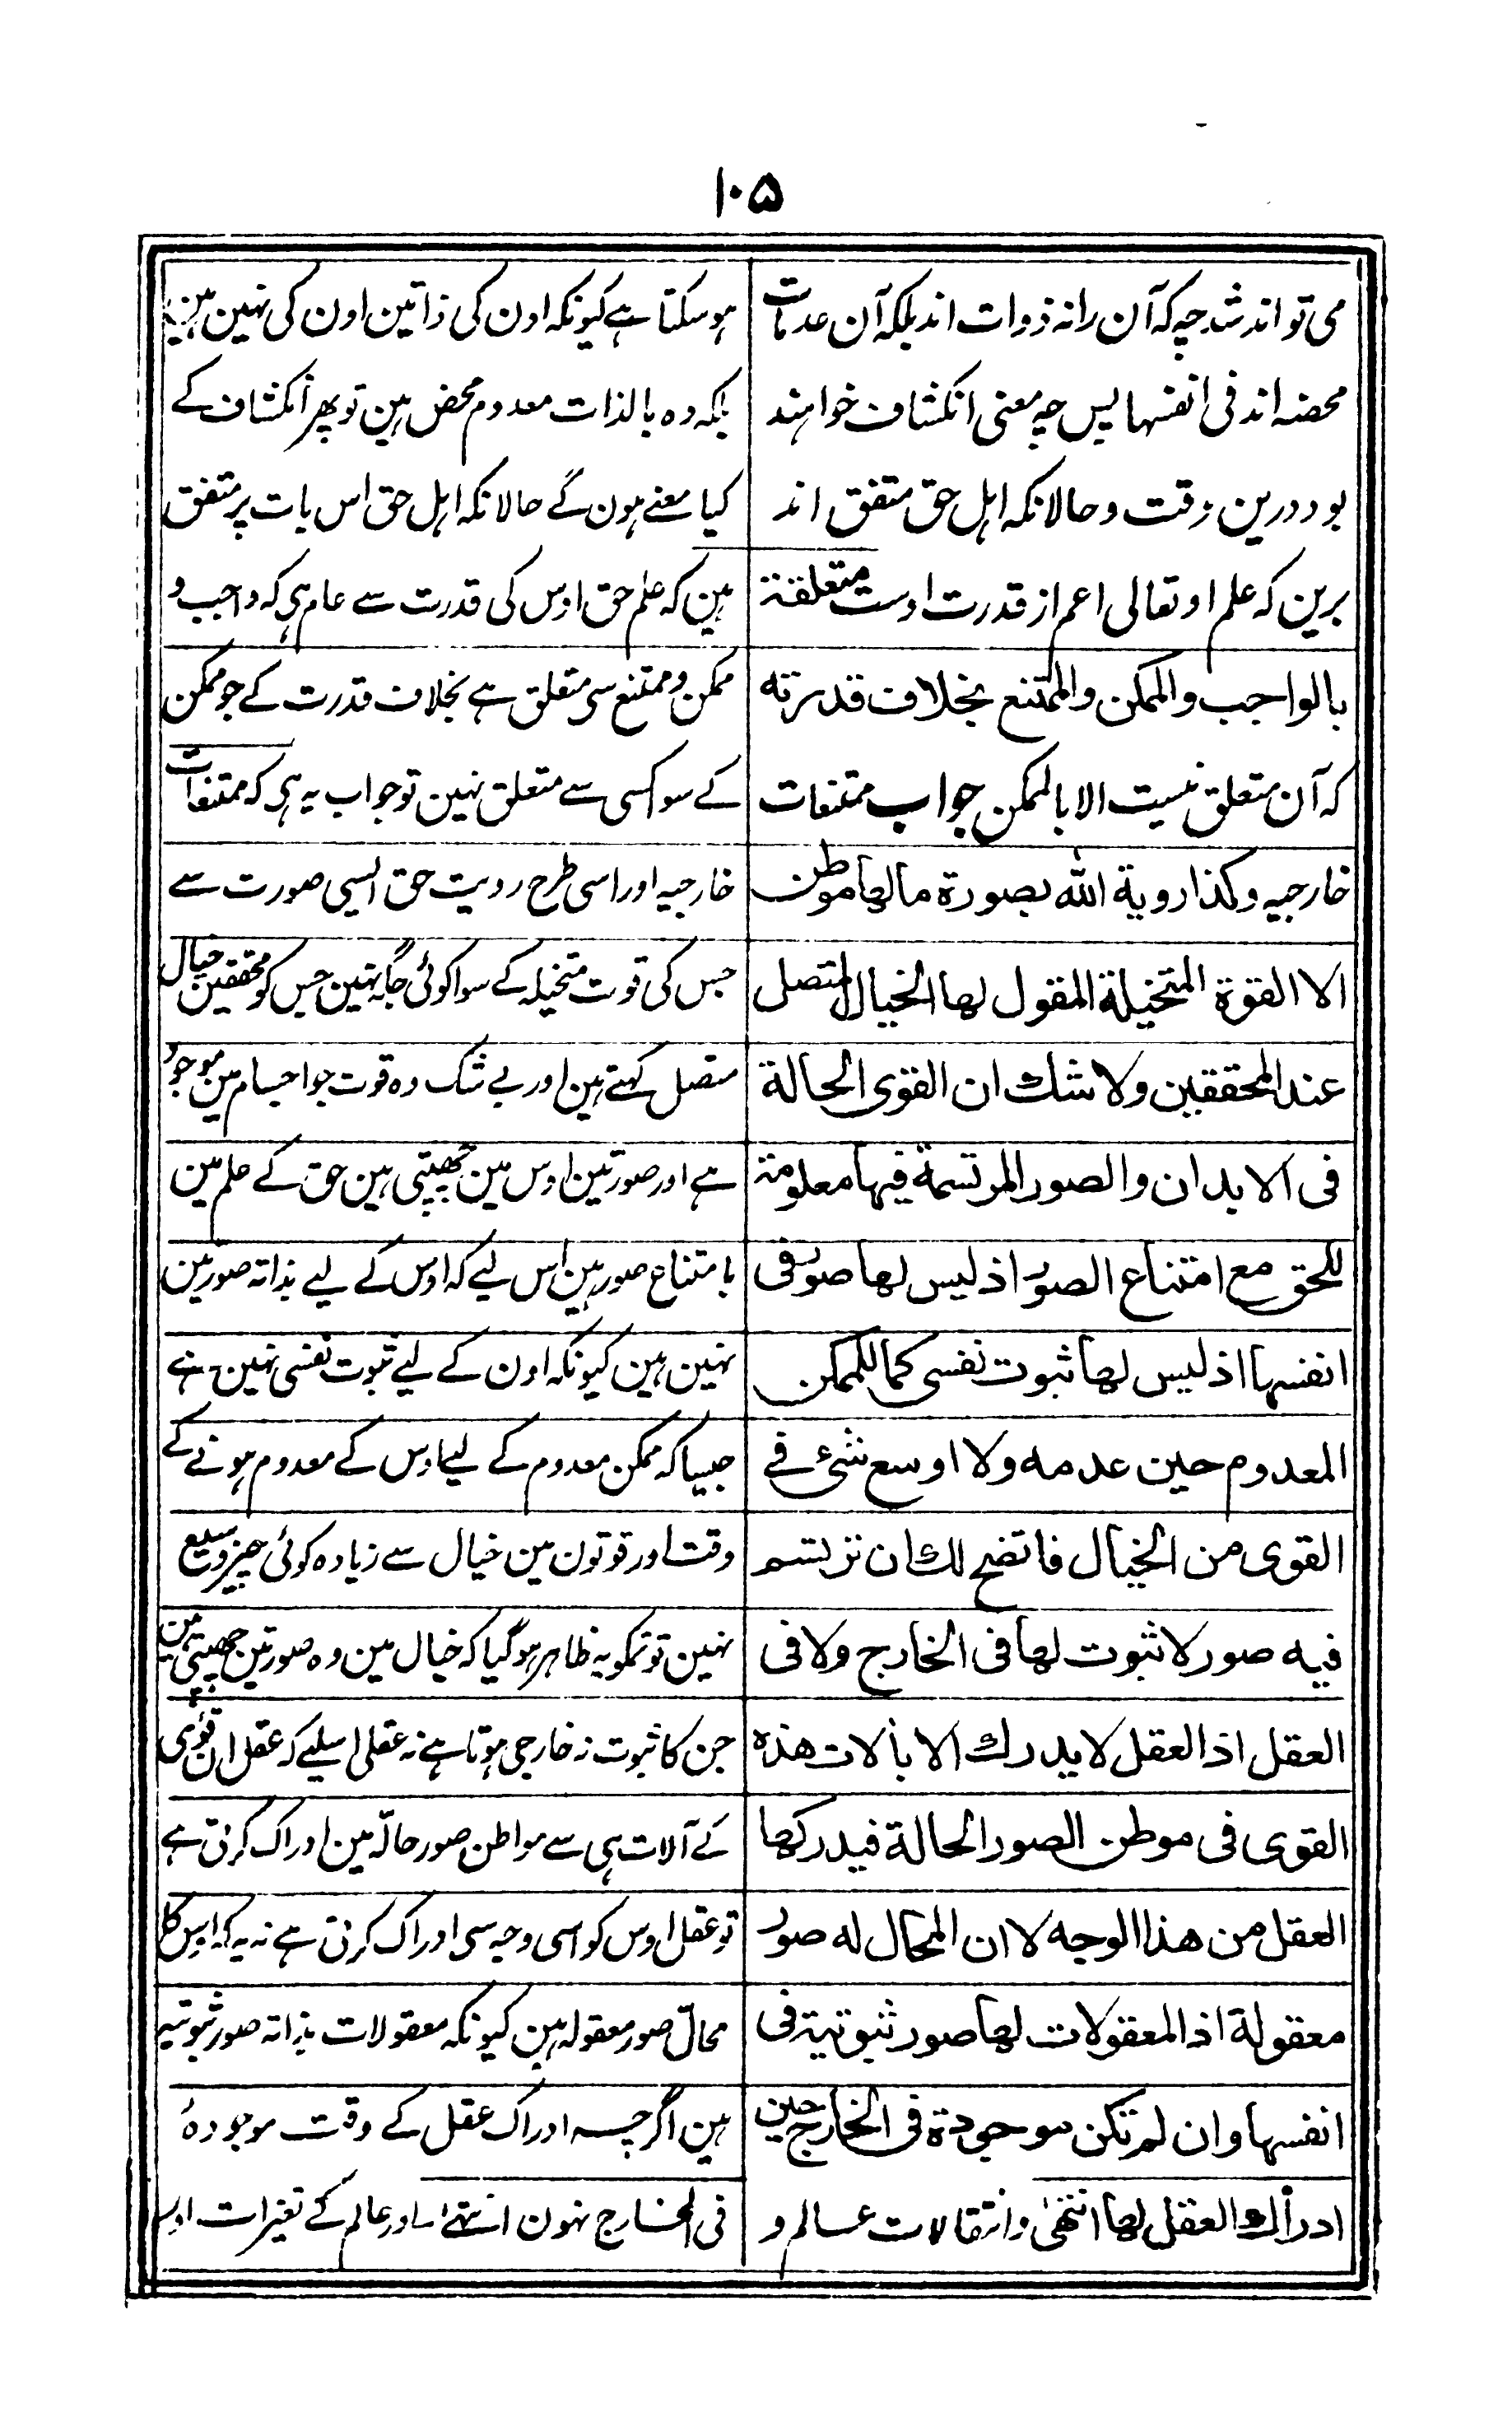 ۱۰۵
می تواند شد چه که آن را نه ذوات اند بلکه آن عدمات
محضه اند فی انفسها پس چه معنی انکشاف خواہند
بود درین وقت و حالانکه اہل حق متفق اند
برین که علم او تعالی اعم از قدرت اوست متعلقة
بالواجب والممکن والممتنع بخلاف قدرته
که آن متعلق نیست الا بالممکن جواب ممتنعات
خارجیه وکذا رویة الله بصورة مالها موطن
الا القوة المتخیلة المقول لها الخیال المتصل
عند المحققین ولا شك ان القوی الحالة
فی الابدان والصور المرتسمة فیها معلومة
للحق مع امتناع الصور اذ لیس لها صور فی
انفسها اذ لیس لها ثبوت نفسی کما للممکن
المعدوم حین عدمه ولا اوسع شیء فے
القوی من الخیال فاتضح لك ان ترتسم
فیه صور لا ثبوت لها فی الخارج ولا فی
العقل اذ العقل لا یدرك الا بألات هذه
القوی فی موطن الصور الحالة فیدرکها
العقل من هذا الوجه لا ان المحال له صور
معقولة اذ المعقولات لها صور ثبوتیة فی
انفسها وان لم تکن موجودة فی الخارج حین
ادراك العقل لها انتهٰی وانتقالات عالم و
ہو سکتا ہے کیونکہ اون کی ذاتین اون کی نہین ہین
بلکہ وہ بالذات معدوم محض ہین تو پھر انکشاف کے
کیا معنے ہون گے حالانکہ اہل حق اس بات پر متفق
ہین کہ علم حق اوس کی قدرت سے عام ہی کہ واجب و
ممکن و ممتنع سی متعلق ہے بخلاف قدرت کے جو ممکن
کے سوا کسی سے متعلق نہین تو جواب یہ ہی کہ ممتنعات
خارجیہ اور اسی طرح رویت حق ایسی صورت سے
جس کی قوت متخیلہ کے سوا کوئی جگہ نہین جس کو محققین خیال
متصل کہتے ہین اور بے شک وہ قوت جو اجسام مین موجود
ہے اور صورتین اوس مین چھپتی ہین حق کے علم مین
با متناع صور ہین اس لیے کہ اوس کے لیے بذاتہ صورتین
نہین ہین کیونکہ اون کے لیے ثبوت نفسی نہین ہے
جیسا کہ ممکن معدوم کے لیے اوس کے معدوم ہونے کے
وقت اور قوتون مین خیال سے زیادہ کوئی چیز وسیع
نہین تو تمکو یہ ظاہر ہوگیا کہ خیال مین وہ صورتین چھپتی ہین
جن کا ثبوت نہ خارجی ہوتا ہے نہ عقلی اسلیے کہ عقل ان قوٰی
کے آلات ہی سے مواطن صور حالّہ مین ادراک کرتی ہے
تو عقل اوس کو اسی وجہ سی ادراک کرتی ہے نہ یہ کہ اوس کا
محالّ صور معقولہ ہین کیونکہ معقولات بذاتہ صور ثبوتیہ
ہین اگرچہ ادراک عقل کے وقت موجودہٴ
فی الخارج نہون انتہے اور عالم کے تغیرات اور